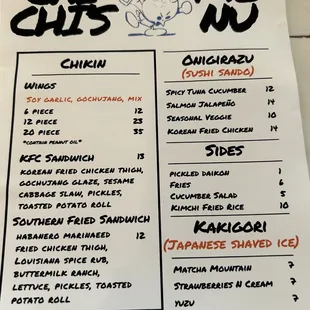 CHIS
NU
CHIKIN
WINGS
SOY GARLIC, GOCHUJANG, MIX
6 PIECE 12
12 PIECE 23
20 PIECE 35
*CONTAIN PEANUT OIL*
KFC SANDWICH 13
KOREAN FRIED CHICKEN THIGH,
GOCHUJANG GLAZE, SESAME
CABBAGE SLAW, PICKLES,
TOASTED POTATO ROLL
SOUTHERN FRIED SANDWICH
HABANERO MARINAEED 12
FRIED CHICKEN THIGH,
LOUISIANA SPICE RUB,
BUTTERMILK RANCH,
LETTUCE, PICKLES, TOASTED
POTATO ROLL
ONIGIRAZU
(SUSHI SANDO)
SPICY TUNA CUCUMBER 12
SALMON JALAPEÑO 14
SEASONAL VEGGIE 10
KOREAN FRIED CHICKEN 14
SIDES
PICKLED DAIKON 1
FRIES 6
CUCUMBER SALAD 5
KIMCHI FRIED RICE 10
KAKIGORI
(JAPANESE SHAVED ICE)
MATCHA MOUNTAIN 7
STRAWBERRIES N CREAM 7
YUZU 7